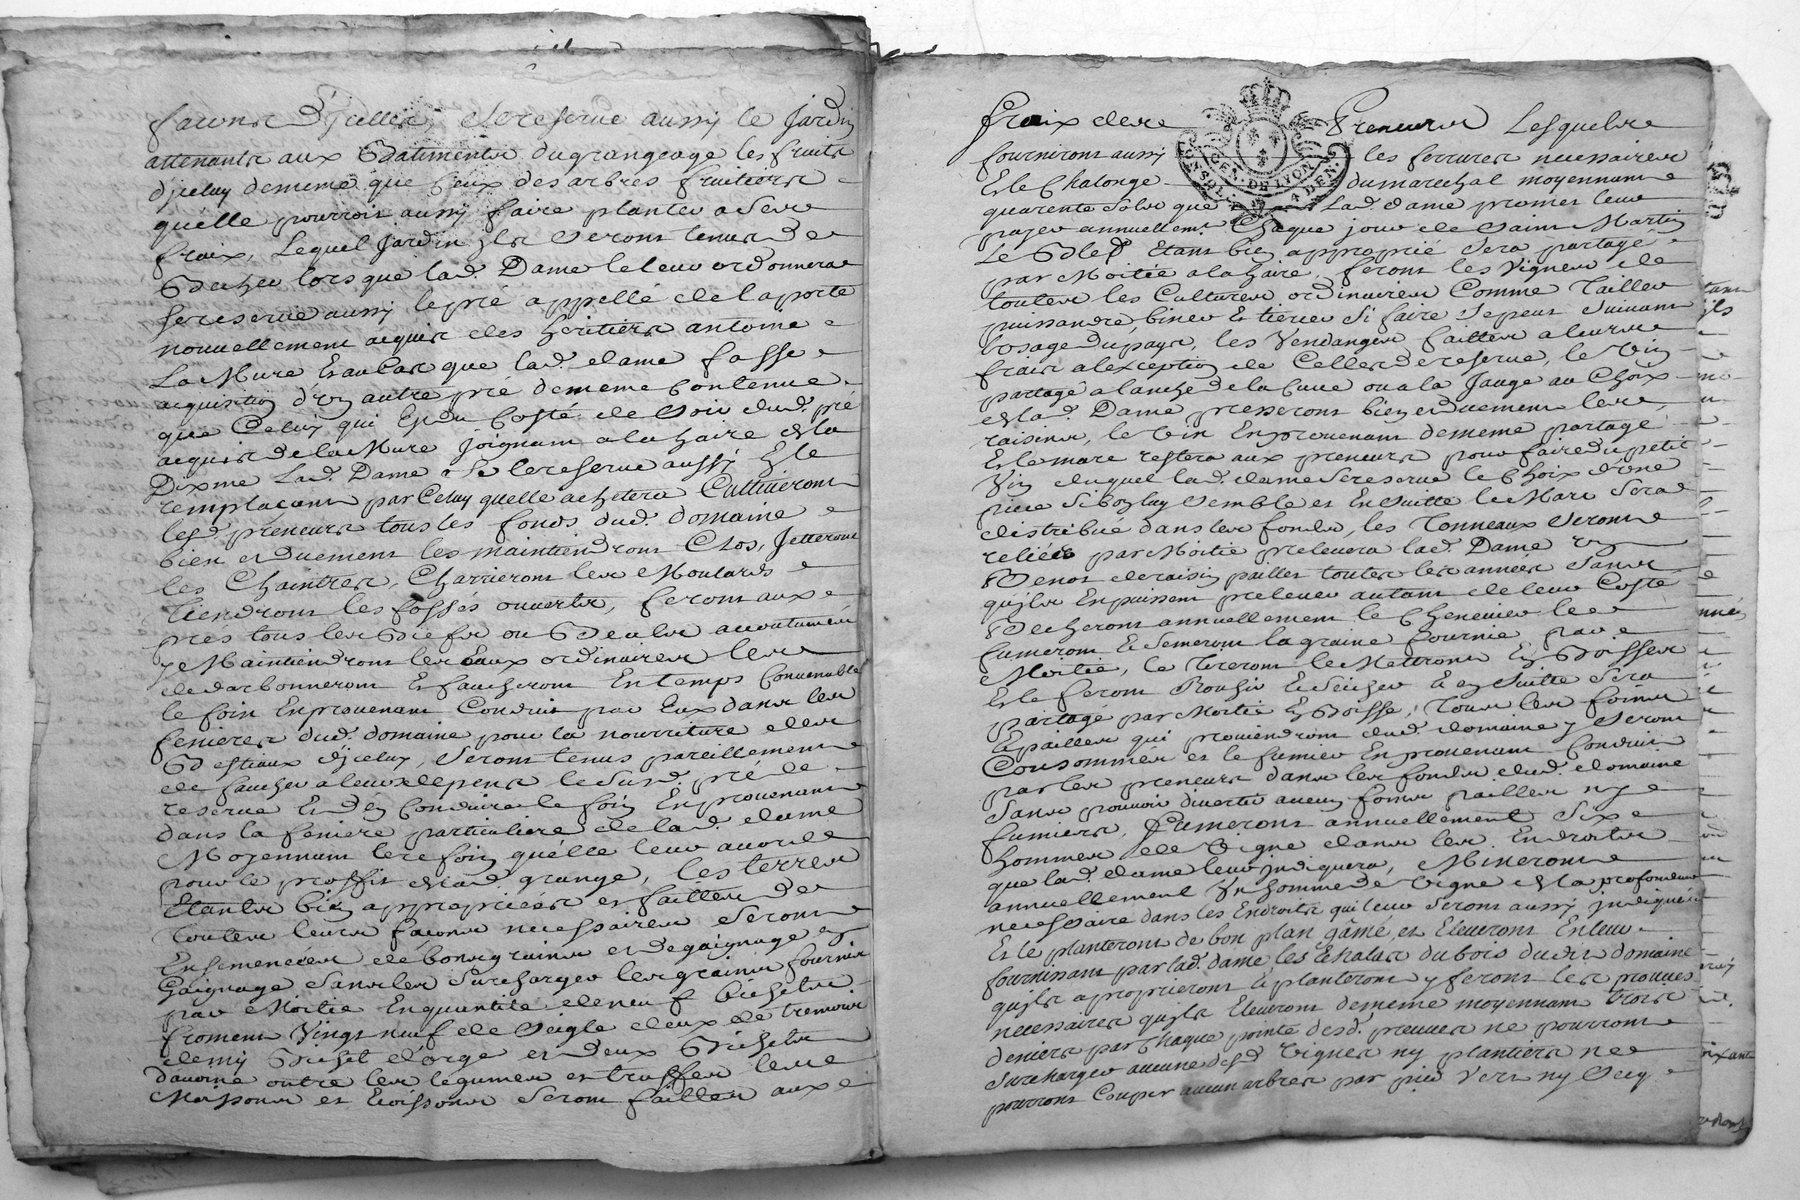 facons d'jcelles, se reserve aussy le jardin
attenants aux Batiments du grangeage les fruits
d'jceluy dememe que Ceux des arbres fruitiers
quelle pourroit aussy faire planter a Ses
fraix, Lequel jardin jls Seront tenus De
Becher lorsque lad. Dame le leur ordonnera
se reserve aussy le pré appellé de la porte
nouvellement acquis des heritiers antoine
La Mure Et au Cas que lad. dame fasse
acquisition d'un autre pré dememe Contenue
que Celuy qui Est du Costé de Soir dud. pré
acquis de la Mure joignant a la haire de la
Dixme Lad. Dame se le reserve aussy Et le
remplacant par Celuy quelle achetera Cultiveront
lesd. preneurs tous les fonds dud. domaine
bien et duement les maintiendront Clos, Jetteront
les Chaintres, Charrieront les Moulards
Tiendront les fossés ouverts, feront aux
prés tous les Biefs ou Beals accoutumés
y Maintiendront les Eaux ordinaires les
dedarbonneront Et faucheront En temps Convenable
le foin En provenant Conduit par Eux dans les
fenieres dud. domaine pour la nourriture des
Bestiaux d'jceluy, Seront tenus pareillement
de faucher a leurs depens le Susd. pré de
reserve Et d'En Conduire le foin En provenant
dans la feniere particuliere de lad. dame
Moyennant le foin quélle leur accorde
pour le proffit de lad. grange, les terres
Etants bien appropriées et faittes de
toutes leurs facons necessaires Seront
Ensemencées de bons grains et de gaignage en
Gaignage Sans les Surcharger les grains fournis
par Moitié En quantité de neuf bichets
froment Vingt neuf de Seigle deux de tremois
demy Bichet d'orge et deux Bichets
d'avoine outre les legumes et truffes les
Moissons et Eoissons Seront faittes aux
fraix des Preneurs Lesquels
fourniront aussi les ferrures necessaires
Et le Chalonge du marechal moyennant
quarente Sols que Lad. dame promet leur
payer annuellemt. Chaque jour de Saint Martin
Le Bled Etant bien approprié Sera partagé
par Moitié a la haire, feront les Vignes de
toutes les Cultures ordinaires Comme Tailler
puissandre, biner Et tierce Si faire Se peut Suivant
l'osage du pays, les Vendanges faittes a leurs
frais a lexception de Celles de reserve, le Vin
partagé a lanche de la Cuve ou a la Jauge au Choix
de lad. Dame presseront bien et duement les
raisins, le vin En provenant dememe partagé
Et le marc restera aux preneurs pour faire du petit
Vin duquel lad. dame Se reserve le Choix d'une
piece Si bon luy Semble et Ensuitte le Marc Sera
distribué dans les fonds, les Tonneaux Seront
reliés par Moitié prelevera lad. Dame un
Benot de raisin paillet toutes les années Sans
qu'jls En puissent prelever autant de leur Costé
Becheront annuellement le Chenevier le
fumeront Et Semeront la graine fournie par
Moitié, le Tireront le Mettront En Boisses
Et le feront Rouhir Et Seicher Et en Suitte Sera
partagé par Moitié En Boisse, Tous les foins
Et pailles qui proviendront dud. domaine y Seront
Consommés et le fumier En provenant Conduit
par les preneurs dans les fonds dud. domaine
Sans pouvoir divertir aucun foins pailles ny
fumiers, fumeront annuellement Six
hommes de Vigne dans les Endroits
que lad. dame leur jndiquera, Mineront
annuellement Un homme de Vigne de la profondeur
necessaire dans les Endroits qui leur Seront aussy jndiqués
Et le planteront de bon plan gâmé, et Eleveront En leur
fournissant par lad. dame les Echalas du bois dudit domaine
qu'jls approprieront Et planteront y feront les prouves
necessaires qu'jls Eleveront dememe moyennant trois
deniers par Chaque pointe desd. preuves ne pourront
Surcharger aucunes desd. Vignes ny plantiers ne
pourront Couper aucun arbres par pied Vert ny Secq
GEN. DE LYON